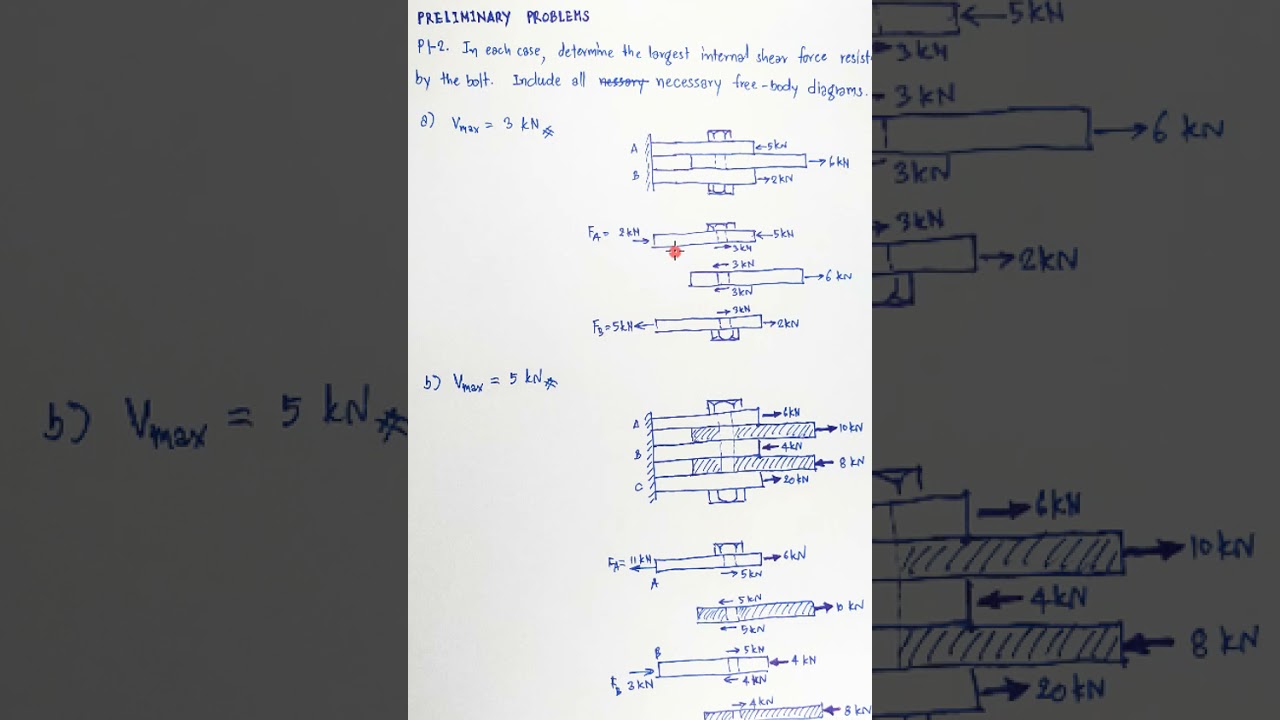 PRELIMINARY PROBLEMS
P1-2. In each case, determine the largest internal shear force resist
by the bolt. Include all nessary necessary free-body diagrams.
a) Vmax = 3 kN
A
5kN
6kN
B
2kN
FA = 2kN
5kN
3kN
3kN
6 kN
3kN
3kN
FB=5kN
2kN
b) Vmax = 5 kN
6kN
A
10kN
B
4kN
8 kN
C
20kN
FA= 11 kN
6kN
5kN
A
5kN
kN
5kN
B
5kN
4 kN
FB 3kN
4kN
4kN
8 kN
b) Vmax = 5 kN
5kN
3kN
3kN
6 kN
3kN
3kN
2kN
6kN
10kN
4kN
8 kN
20kN